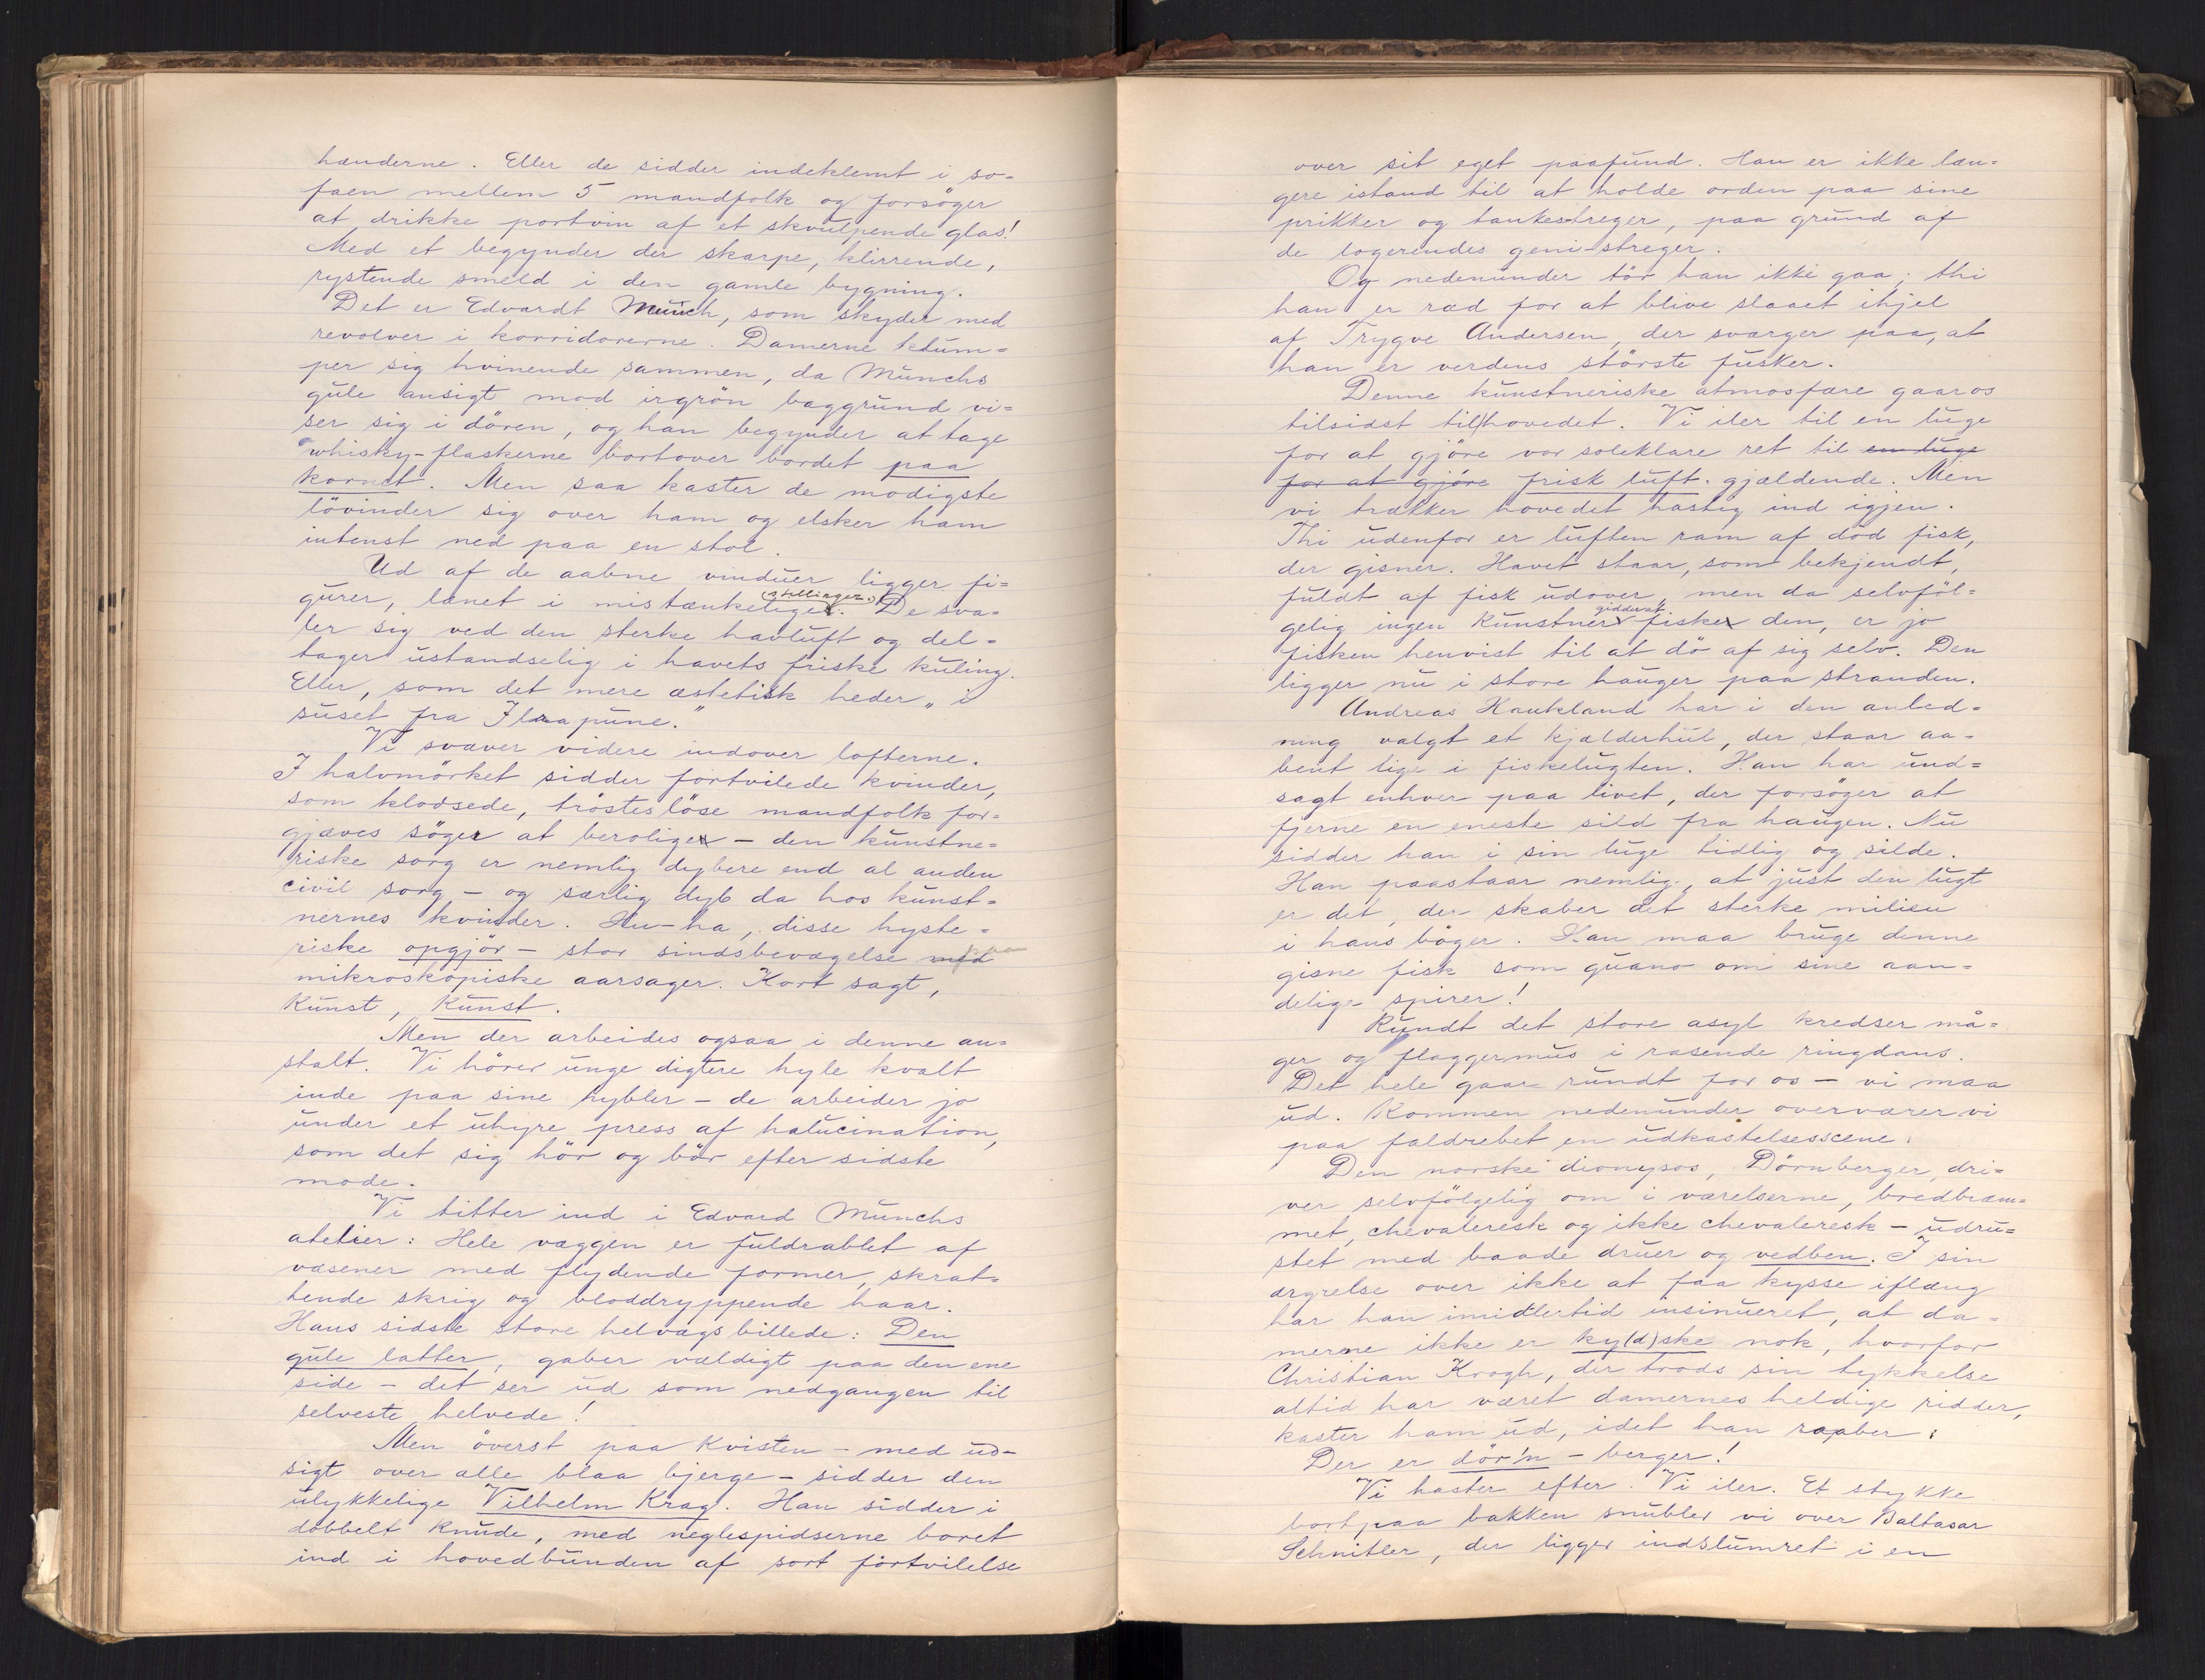 hænderne. Eller de sidder indeklemt i so=
faen mellem 5 mandfolk og forsöger
at drikke portvin af et skvulpende glas!
Med et begynder der skarpe, klirrende,
rystende smeld i den gamle bygning.
Det er Edvardt Munch, som skyder med
revolver i korridorerne. Damerne klum=
per sig hvinende sammen, da Munchs
gule ansigt mod irgrön baggrund vi=
ser sig i dören, og han begynder at tage
whisky-flaskerne bortover bordet paa
kornet. Men saa kaster de modigste
lövinder sig over ham og elsker ham
intenst ned paa en stol.
Ud af de aabne vinduer ligger fi=
gurer, lænet i mistænkelige (stillinger.) De sva=
ler sig ved den sterke havluft og del=
tager ustandselig i havets friske kuling.
Eller, som det mere æstetisk heder „i
suset fra Flrapune."
Vi svæver videre indover lofterne.
I halvmörket sidder fortvilede kvinder,
som klodsede, trösteslöse mandfolk for=
gjæves söger at berolige – den kunstne=
riske sorg er nemlig dybere end al anden
civil sorg – og særlig dyb da hos kunst=
nernes kvinder. Hu-ha, disse hyste=
riske opgjör – stor sindsbevægelse med paa
mikroskopiske aarsager. Kort sagt,
Kunst, Kunst.
Men der arbeides ogsaa i denne an=
stalt. Vi hörer unge digtere hyle kvalt
inde paa sine hybler – de arbeider jo
under et uhyre press af halucination,
som det sig hör og bör efter sidste
mode.
Vi titter ind i Edvard Munchs
atelier: Hele væggen er fuldrablet af
væsener med flydende former, skrat=
tende skrig og bloddryppende haar.
Hans sidste store helvægsbillede: Den
gule latter, gaber vældigt paa den ene
side – det ser ud som nedgangen til
selveste helvede!
Men överst paa Kvisten – med ud-
sigt over alle blaa bjerge – sidder den
ulykkelige Vilhelm Krag. Han sidder i
dobbelt knude, med neglespidserne boret
ind i hovedbunden af sort fortvilelse
over sit eget paafund. Han er ikke læn=
gere istand til at holde orden paa sine
prikker og tankestreger, paa grund af
de logerendes geni-streger.
Og nedenunder tör han ikke gaa; thi
han er ræd for at blive slaaet ihjel
af Trygve Andersen, der sværger paa, at
han er verdens störste fusker.
Denne kunstneriske atmosfære gaar os
tilsidst til hovedet. Vi iler til en luge
for at gjöre vor soleklare ret til en luge
for at gjöre frisk luft. gjældende. Men
vi trækker hovedet hastig ind igjen.
Thi udenfor er luften ram af död fisk,
der gisner. Havet staar, som bekjendt,
fuldt af fisk udover, men da selvföl=
gelig ingen Kunstner gidder at fiske den, er jo
fisken henvist til at dö af sig selv. Den
ligger nu i store hauger paa stranden.
Andreas Haukland har i den anled=
ning valgt et kjælderhul, der staar aa=
bent lige i fiskelugten. Han har und=
sagt enhver paa livet, der forsöger at
fjerne en eneste sild fra haugen. Nu
sidder han i sin luge tidlig og silde.
Han paastaar nemlig, at just den lugt
er det, der skaber det sterke milieu
i hans böger. Han maa bruge denne
gisne fisk som guano om sine aan=
delige spirer!
Rundt det store asyl kredser må=
ger og flaggermus i rasende ringdans.
Det hele gaar rundt for os – vi maa
ud. Kommen nedenunder overværer vi
paa faldrebet en udkastelsesscene:
Den norske dionysos, Dörnberger, dri=
ver selvfölgelig om i værelserne, bredbræm=
met, chevaleresk og ikke chevaleresk – udru=
stet med baade druer og vedben. I sin
ærgrelse over ikke at faa kysse iflæng
har han imidlertid insinueret, at da=
merne ikke er ky(d)ske nok, hvorfor
Christian Krogh, der trods sin tykkelse
altid har været damernes heldige ridder,
kaster ham ud, idet han raaber:
Der er dör'n – berger!
Vi haster efter. Vi iler. Et stykke
bort paa bakken snubler vi over Baltasar
Schnitler, der ligger indslumret i en